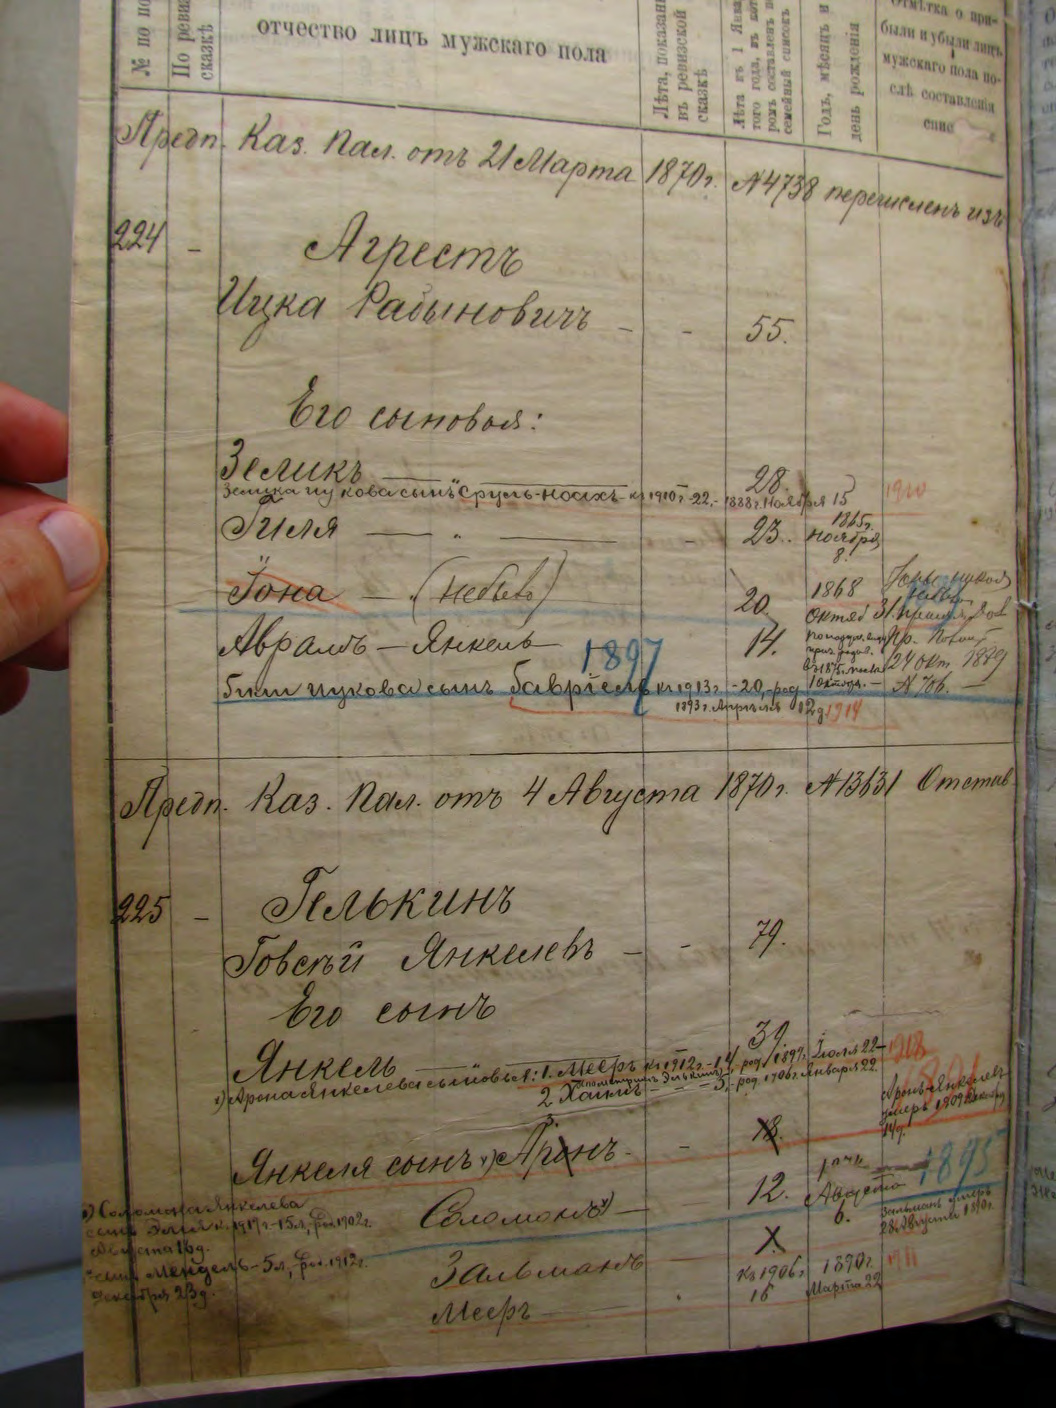 № по по
По ревиз сказкѣ
отчество лицъ мужскаго пола
Лѣта, показан въ ревизской сказкѣ
Лѣта къ 1 Янва того года, въ кото ромъ составленъ по семейный списокъ
Годъ, мѣсяцъ и день рожденія
Отмѣтка о при-
были и убыли лицъ
мужскаго пола по-
слѣ составленія
спис
Предп. Каз. Пал. отъ 21 Марта 1870г. №4738 перечисленъ изъ
224 - Агрестъ
Ицка Рабыновичъ - - 55.
Его сыновья:
Зеликъ 28.
Зелика Ицкова сынъ Сруль-Носихъ къ 1910г. 22, - 1888г. Ноября 15 1910
Гиля - 23. 1865г. Ноября 8.
Іона - (небылъ) 20. 1868 Октяб 31.
Аврамъ - Янкель 14.
24 Окт 1889
№ 706. -
1897
Гили Ицкова сынъ Гавріель къ 1913г. - 20, - род
1893г. Апрѣля 12д. 1914
Предп. Каз. Пал. отъ 4 Августа 1870г. №13631 Отстав.
225 - Гелькинъ
Говсѣй Янкелевъ - - 79.
Его сынъ
Янкель 39.
1) Арона Янкелева сыновья: 1. Мееръ къ 1912г. - 14, род. 1897г. Іюля 22 1918
2 Хаимъ - - - 5, - род. 1906г. Января 22.
1891
Аронъ Янкелев
умеръ 1909
14д.
Янкеля сынъ 1) Аронъ - - 18.
Соломонъ - 12. Августа 6. 1895
Залманъ умеръ
28 Августа 1890г.
2) Соломона Янкелева
сынъ Эмля къ 1917г - 15л, род. 1902г.
Августа 16д.
сынъ Мендель - 5л, род. 1912г.
Декабря 23д.
Зальманъ X
Мееръ къ 1906г. 16 1890г. Марта 22 1911